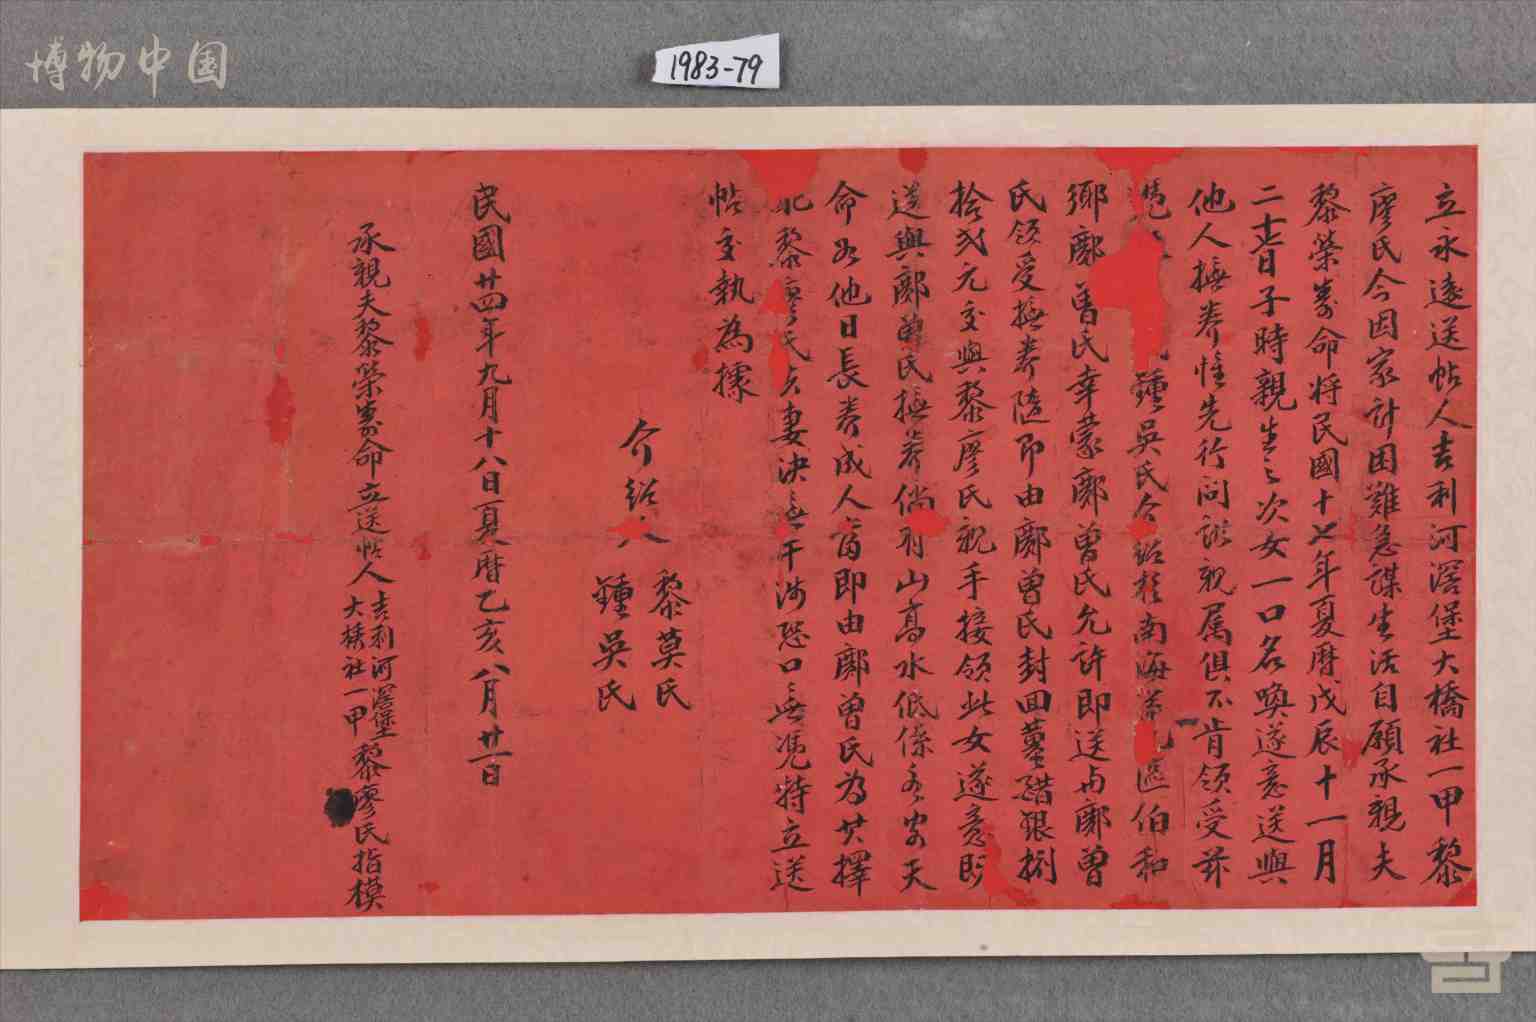 博物中国
1983-79
立永遠送帖人吉利河滘堡大橋社一甲黎
廖氏今因家計困難急謀生活自願承親夫
黎榮壽命將民國十七年夏曆戊辰十一月
二十七日子時親生之次女一口名喚遂意送與
他人撫養惟先行問詢親属俱不肯領受茲
憑 鍾吳氏介紹於南海 區伯和
鄉鄺曾氏幸蒙鄺曾氏允許即送与鄺曾
氏領受撫養隨即由鄺曾氏封回薑醋銀捌
拾弍元交與黎廖氏親手接領此女遂意既
送與鄺曾氏撫養倘有山高水低係各安天
命如他日長養成人育即由鄺曾氏為其擇
配黎廖氏夫妻決無干涉恐口無凴特立送
帖交執為據
介紹人 黎莫氏 鍾吳氏
民國廿四年九月十八日夏曆乙亥八月廿一日
承親夫黎榮壽命立送帖人吉利河滘堡大橋社一甲黎廖氏指模